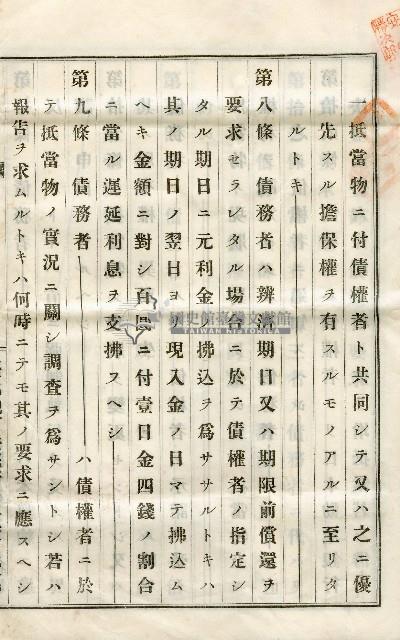 一、抵當物ニ付債權者ト共同シテ又ハ之ニ優
先スル擔保權ヲ有スルモノアルニ至リタ
ルトキ
第八條債務者ハ辨濟期日又ハ期限前償還ヲ
要求セラレタル場合ニ於テ債權者ノ指定シ
タル期日ニ元利金ノ拂込ヲ爲ササルトキハ
其ノ期日ノ翌日ヨリ現入金ノ日マテ拂込ム
ヘキ金額ニ對シ百圓ニ付壹日金四錢ノ割合
ニ當ル遲延利息ヲ支拂フヘシ
第九條債務者 ハ債權者ニ於
テ抵當物ノ實況ニ關シ調查ヲ爲サントシ若ハ
報告ヲ求ムルトキハ何時ニテモ其ノ要求ニ應スヘシ
國史館臺灣文獻館
TAIWAN HISTORICA